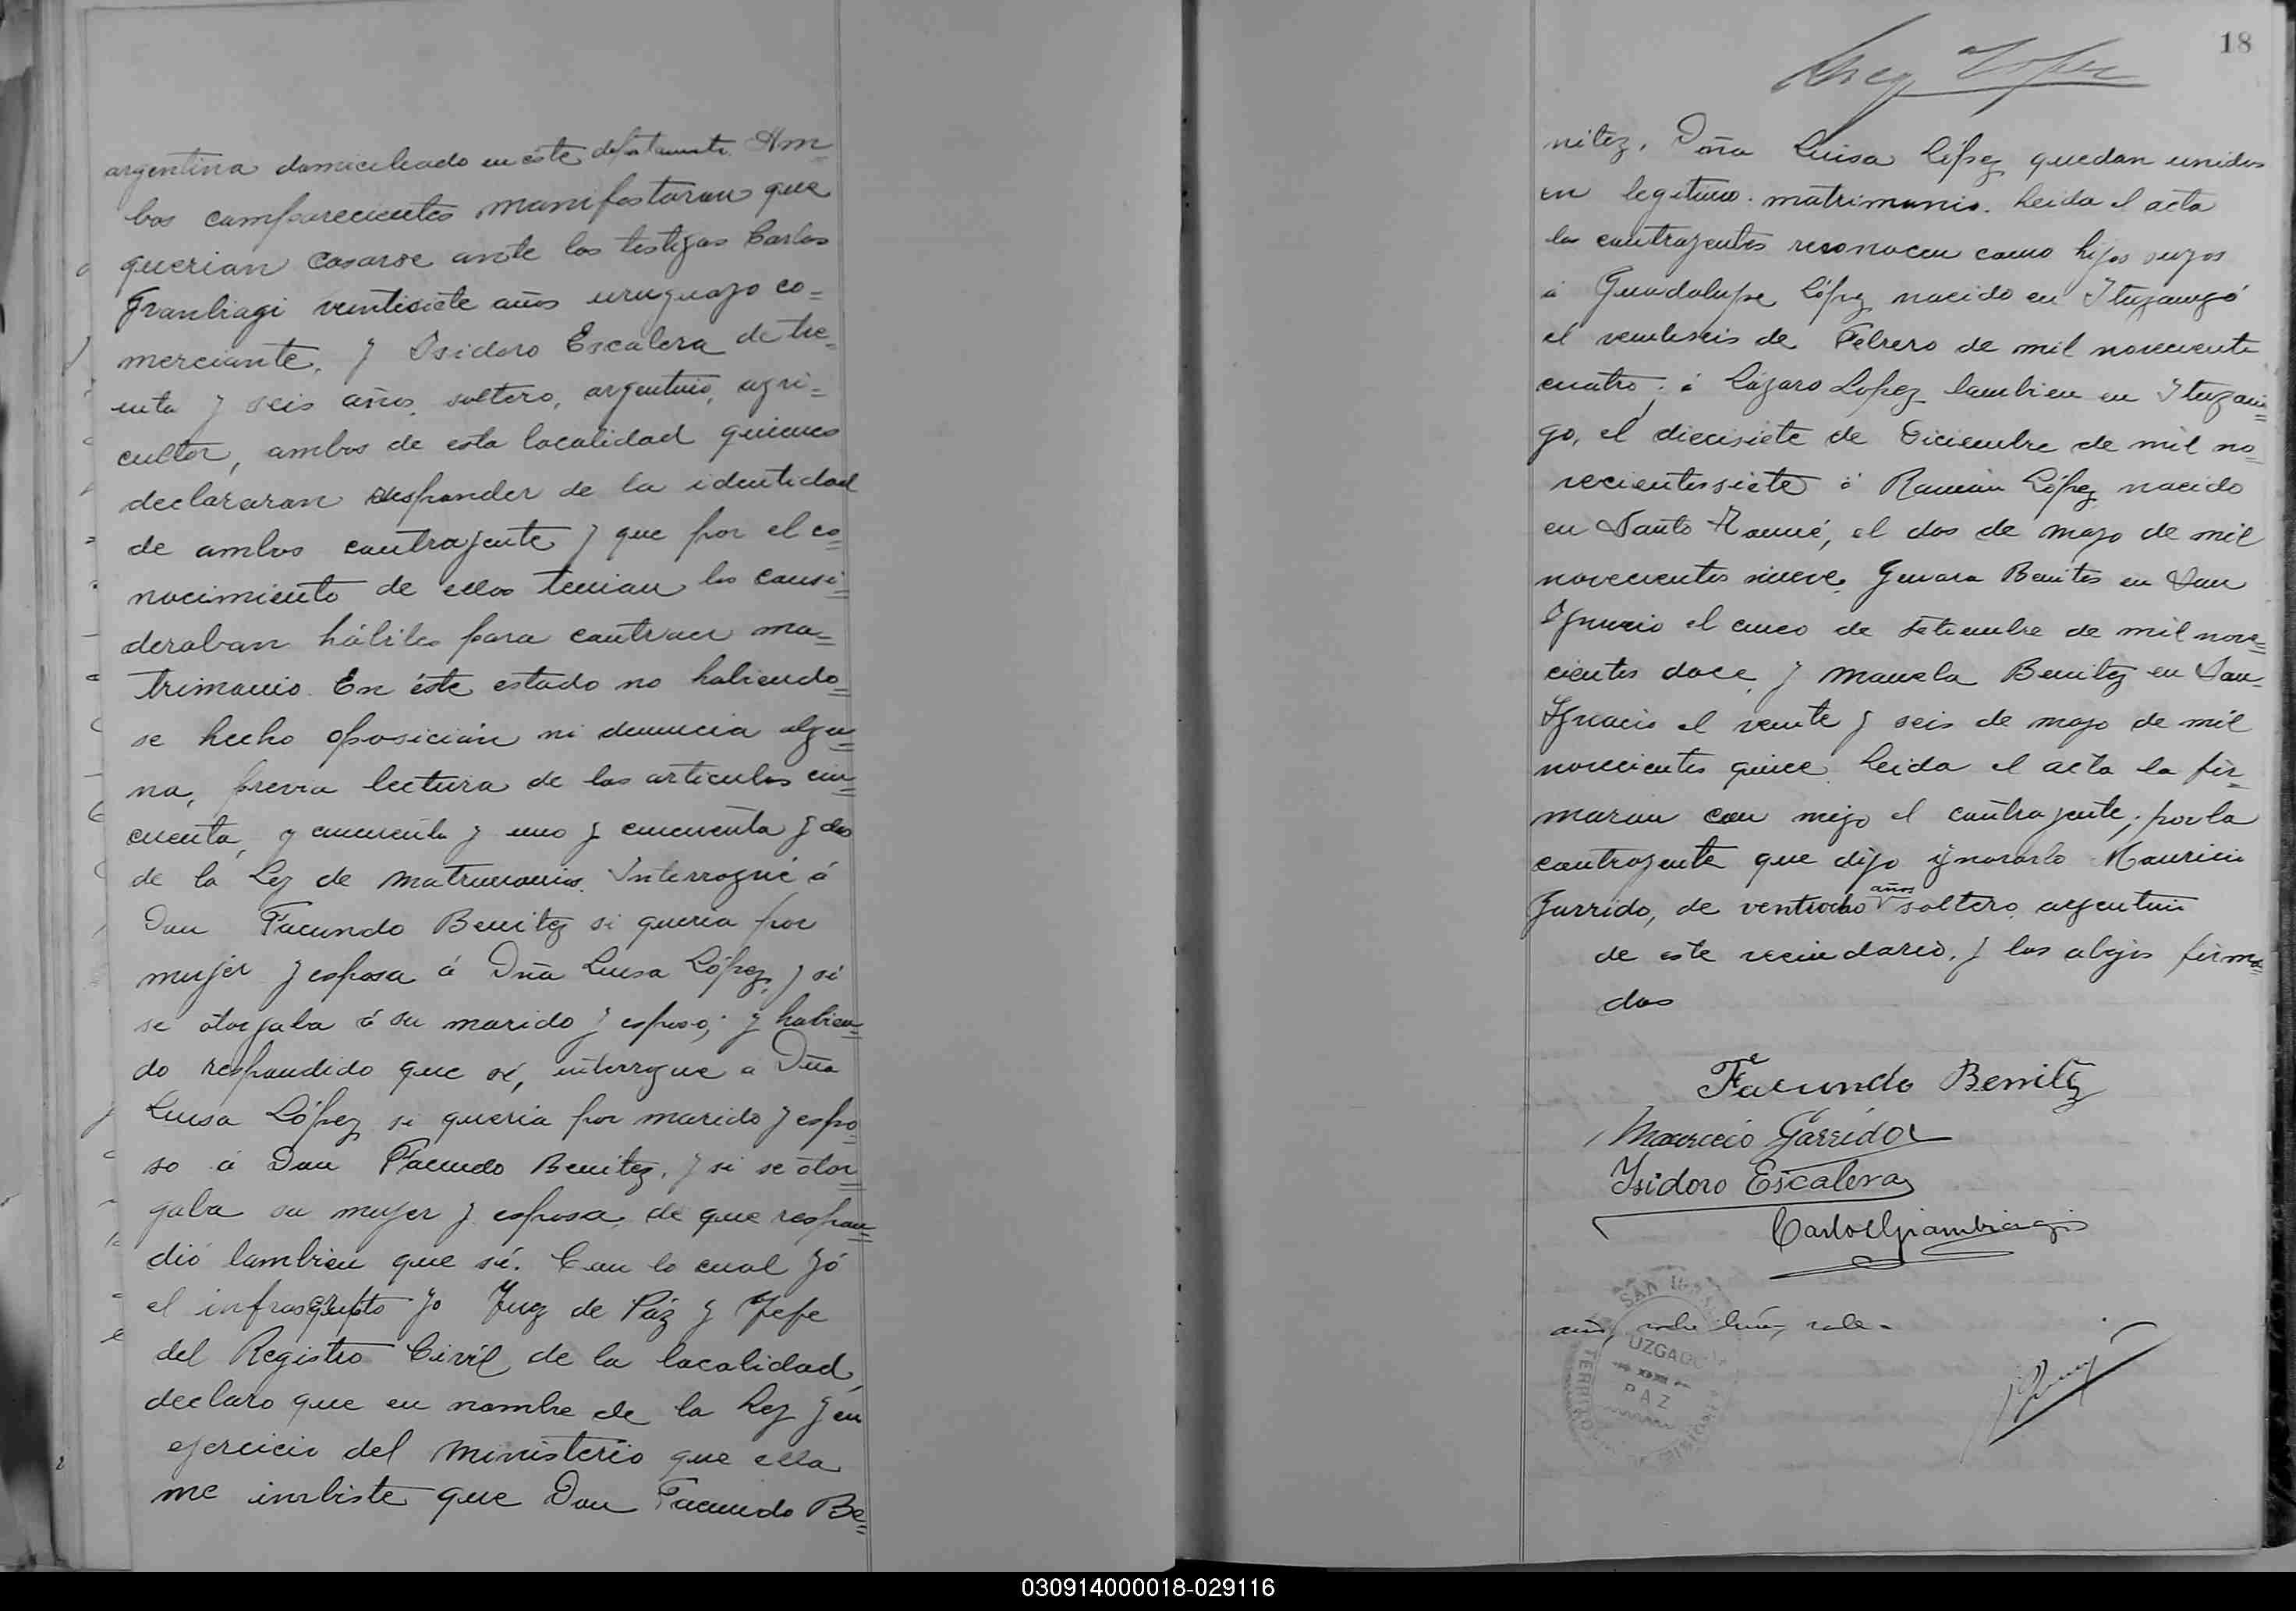 argentina domiciliado en éste departamento. Am=
bos comparecientes manifestaron que
querian casarse ante los testigos Carlos
Gianbiagi ventisiete años uruguayo co=
merciante, y Isidoro Escalera de tre=
inta y seis años, soltero, argentino, agri=
cultor, ambos de esta localidad quienes
declararon responder de la identidad
de ambos contrayente y que por el co=
nocimiento de ellos tenian los consi=
deraban hábiles para contraer ma=
trimonio. En éste estado no habiendo=
se hecho oposición ni denuncia algu=
na, previa lectura de los articulos cin=
cuenta, y cincuenta y uno y cincuenta y dos
de la Ley de Matrimonios. Interrogué á
Don Facundo Benitez si queria por
mujer y esposa á Dña Luisa López, y si
se otorgaba á su marido y esposo; y habien=
do respondido que sí, interrogue a Dña
Luisa López si queria por marido y espo=
so á Don Facundo Benitez, y si se otor=
gaba su mujer y esposa, de que respon=
dió tambien que sí. Con lo cual yó
el infrascripto yo Juez de Páz y Jefe
del Registro Civíl de la localidad,
declaro que en nombre de la Ley y en
ejercicio del Ministerio que ella
me inbiste que Don Facundo Be=
18
Lopez
nitez, Doña Luisa López quedan unidos
en legitimo matrimonio. Leida el acta
los contrayentes reconocen como hijos suyos
á Guadalupe López nacido en Ituzaingó
el ventiseis de Febrero de mil novecientos
cuatro; á Lázaro Lopez tambien en Ituzain=
go, el diecisiete de Diciembre de mil no=
vecientossiete á Ramón López nacido
en Santo Tomé, el dos de mayo de mil
novecientos nueve, Genara Benites en San
Ignacio el cinco de Setiembre de mil nove=
cientos doce, y Manuela Benitez en San
Ignacio el veinte y seis de mayo de mil
novecientos quince. Leida el acta la fir=
maron con migo el contrayente; por la
contrayente que dijo ignorarlo Mauricio
Garrido, de ventiocho años soltero, argentino
de este vecindario, y los abajo firma=
dos
Facundo Benitez
Mauricio Garrido
Isidoro Escalera
Carlos Giambiagi
años, vale.
SAN IGNACIO
JUZGADO
DE
PAZ
TERRITORIO
MISIONES
030914000018-029116